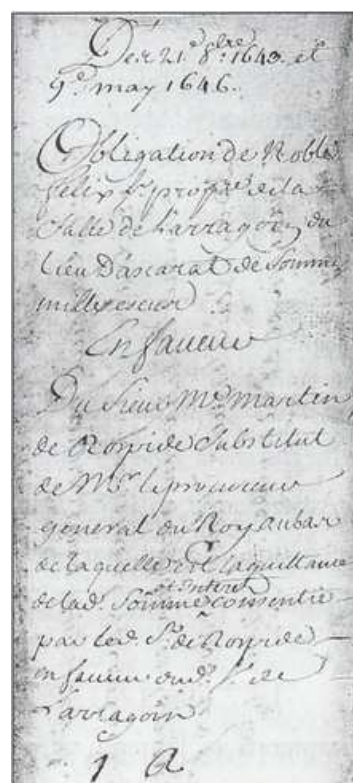 Des 21e 8bre 1643. et
9e may 1646.
Obligation de Noble
felix Sr propre de la
Salle de Larragoin du
lieu Dascarat de Somme
mille escus
En faveur
Du Sieur Me martin
de Rospide Substitut
de Mr le procureur
general du Roy au bas
de laquelle est la quittance
de lad. Somme et interet consentie
par led. Sr de Rospide
en faveur dud. Sr de
Larragoin
1 a